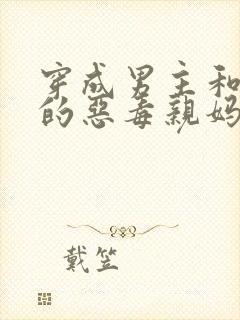 穿成男主和
的恶毒亲妈
戴笠